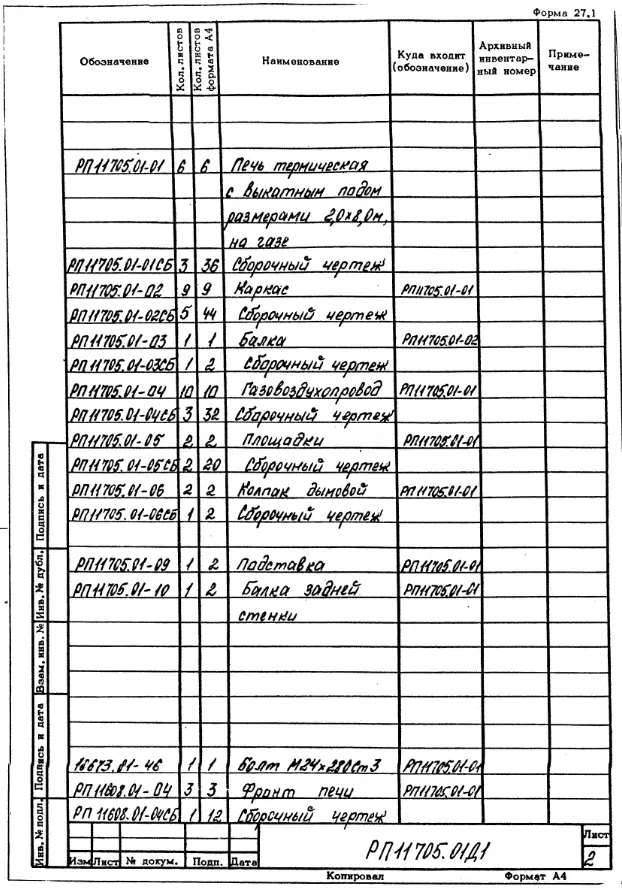 Форма 27.1
Обозначение Кол. листов Кол. листов формата А4 Наименование Куда входит (обозначение) Архивный инвентар- ный номер Приме- чание
РП11705.01-01 6 6 Печь термическая
с выкатным подом
размерами 2,0х8,0м,
на газе
РП11705.01-01СБ 3 36 Сборочный чертеж
РП11705.01-02 9 9 Каркас РП11705.01-01
РП11705.01-02СБ 5 44 Сборочный чертеж
РП11705.01-03 1 1 Балка РП11705.01-02
РП11705.01-03СБ 1 2 Сборочный чертеж
РП11705.01-04 10 10 Газовоздухопровод РП11705.01-01
РП11705.01-04СБ 3 32 Сборочный чертеж
РП11705.01-05 2 2 Площадки РП11705.01-01
РП11705.01-05СБ 2 20 Сборочный чертеж
РП11705.01-06 2 2 Колпак дымовой РП11705.01-01
РП11705.01-06СБ 1 2 Сборочный чертеж
РП11705.01-09 1 2 Подставка РП11705.01-01
РП11705.01-10 1 2 Балка задней РП11705.01-01
стенки
1 1 Болт М24х280Ст3 РП11705.01-01
РП11608.01-04 3 3 Фронт печи РП11705.01-01
РП 11608.01-04СБ 1 12 Сборочный чертеж
Подпись и дата
Инв. № дубл.
Взам. инв. №
Подпись и дата
Инв. № подл.
Изм Лист № докум. Подп. Дата
РП11705.01Д1
Лист
2
Копировал Формат А4